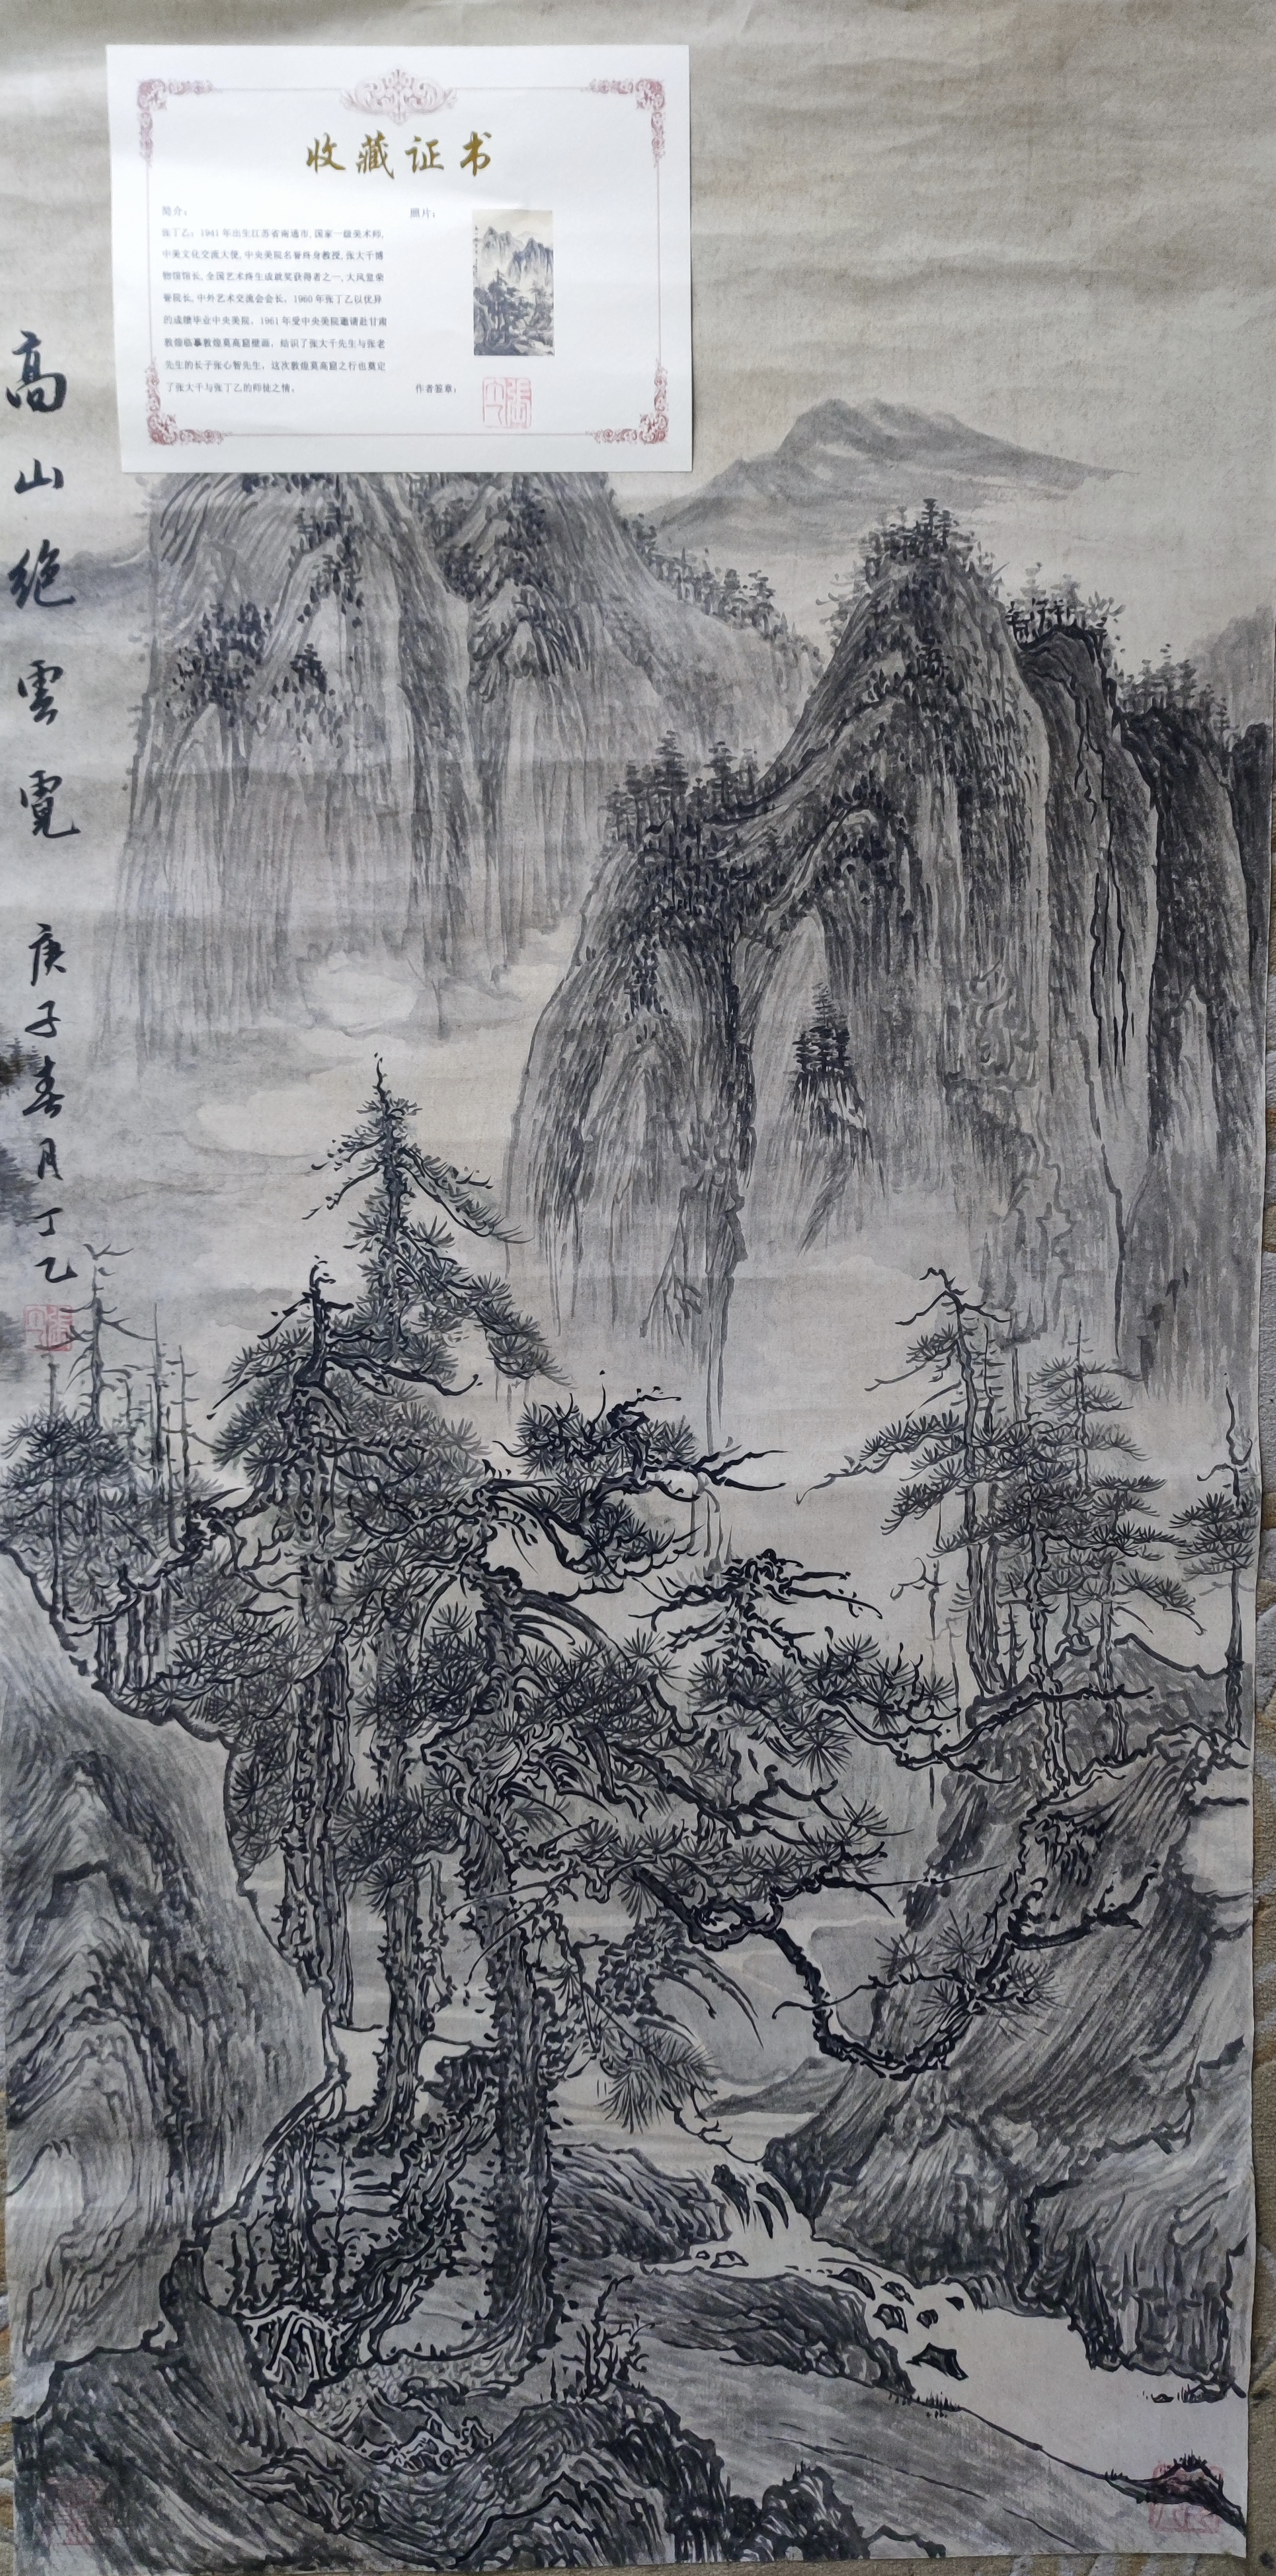 收藏证书
简介：
张丁乙：1941年出生江苏省南通市，国家一级美术师，
中美文化交流大使，中央美院名誉终身教授，张大千博
物馆馆长，全国艺术终生成就奖获得者之一，大风堂荣
誉院长，中外艺术交流会会长。1960年张丁乙以优异
的成绩毕业中央美院。1961年受中央美院邀请赴甘肃
敦煌临摹敦煌莫高窟壁画，结识了张大千先生与张老
先生的长子张心智先生，这次敦煌莫高窟之行也奠定
了张大千与张丁乙的师徒之情。
照片：
作者签章：
高山绝雲霓
庚子春月丁乙